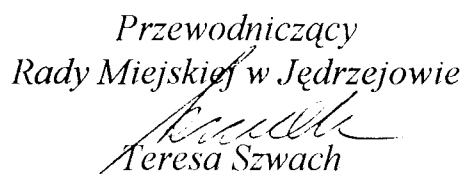 Przewodniczący
Rady Miejskiej w Jędrzejowie
Teresa Szwach